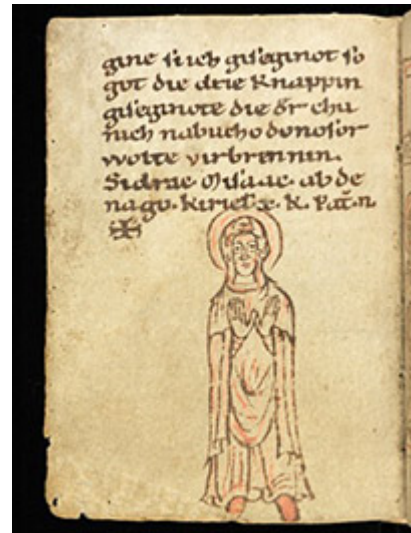 gine si ich giseginot so
got die drie knappin
giseginote die d̄r chu
nich nabuchodonosor
wolte virbrennin.
Sidrac. Misaac. abde
nago. kiriel. x. k. Pat̄. n